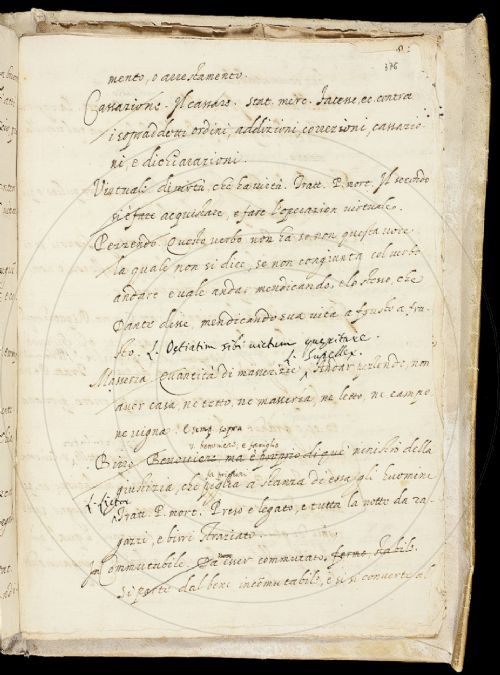 376
mento, o arrestamento.
Cassazione. Il cassare. Stat. merc. facesse, ec. contra
i sopraddetti ordini, addizioni, correzioni, cassazio-
ni, e dichiarazioni.
Virtuale. di virtù, che ha virtù. Tratt. P. mort. Il secondo
si è fare acquistare, e fare l'operazion virtuale.
Pezzendo. Questo verbo non ha se non questa voce
la quale non si dice, se non congiunta col verbo
andare e vale andar mendicando, e lo stesso, che
Dante disse, mendicando sua vita a frusto a fru-
sto. L. Ostiatim sibi victum quaeritare.
L. Supellex.
Masseria Quantità di masserizie. Andar pezzendo, non
aver casa, ne tetto, ne masseria, ne letto, ne campo
ne vigna. Esemp. sopra
v. berroviere, e famiglio
Birro Berroviere, ma è proprio di que' ministri della
i prigioni
giustizia, che piglia a stanza di essa gli huomini
L. Lictor
Tratt. P. mort. Preso e legato, e tutta la notte da ra-
gazzi, e birri straziato.
non
Incommutabile. Da esser commutato, fermo stabile.
Si parte dal bene incommutabile, e si si converte al